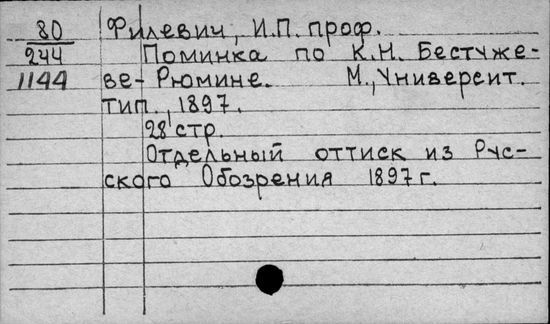 80 Филевич, И.П. проф.
244 Поминка по К.Н. Бестуже-
1144 ве-Рюмине. М., Университ.
тип., 1897.
28 стр.
Отдельный оттиск из Рус-
ского Обозрения 1897 г.